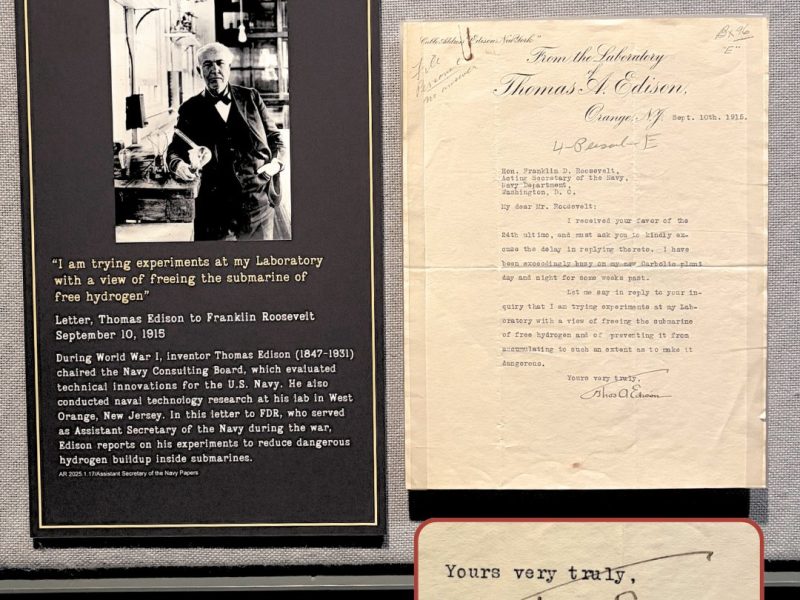 "I am trying experiments at my Laboratory
with a view of freeing the submarine of
free hydrogen"
Letter, Thomas Edison to Franklin Roosevelt
September 10, 1915
During World War I, inventor Thomas Edison (1847-1931)
chaired the Navy Consulting Board, which evaluated
technical innovations for the U.S. Navy. He also
conducted naval technology research at his lab in West
Orange, New Jersey. In this letter to FDR, who served
as Assistant Secretary of the Navy during the war,
Edison reports on his experiments to reduce dangerous
hydrogen buildup inside submarines.
AR 2025.1.17/Assistant Secretary of the Navy Papers
"Edison, New York"
File
Personal
"E"
From the Laboratory
of
Thomas A. Edison,
Orange, N.J. Sept. 10th. 1915.
Hon. Franklin D. Roosevelt,
Acting Secretary of the Navy,
Navy Department,
Washington, D. C.
My dear Mr. Roosevelt:
I received your favor of the
24th ultimo, and must ask you to kindly ex-
cuse the delay in replying thereto. I have
been exceedingly busy on my new Carbolic plant
day and night for some weeks past.
Let me say in reply to your in-
quiry that I am trying experiments at my Lab-
oratory with a view of freeing the submarine
of free hydrogen and of preventing it from
accumulating to such an extent as to make it
dangerous.
Yours very truly,
Thos A Edison
Yours very truly,